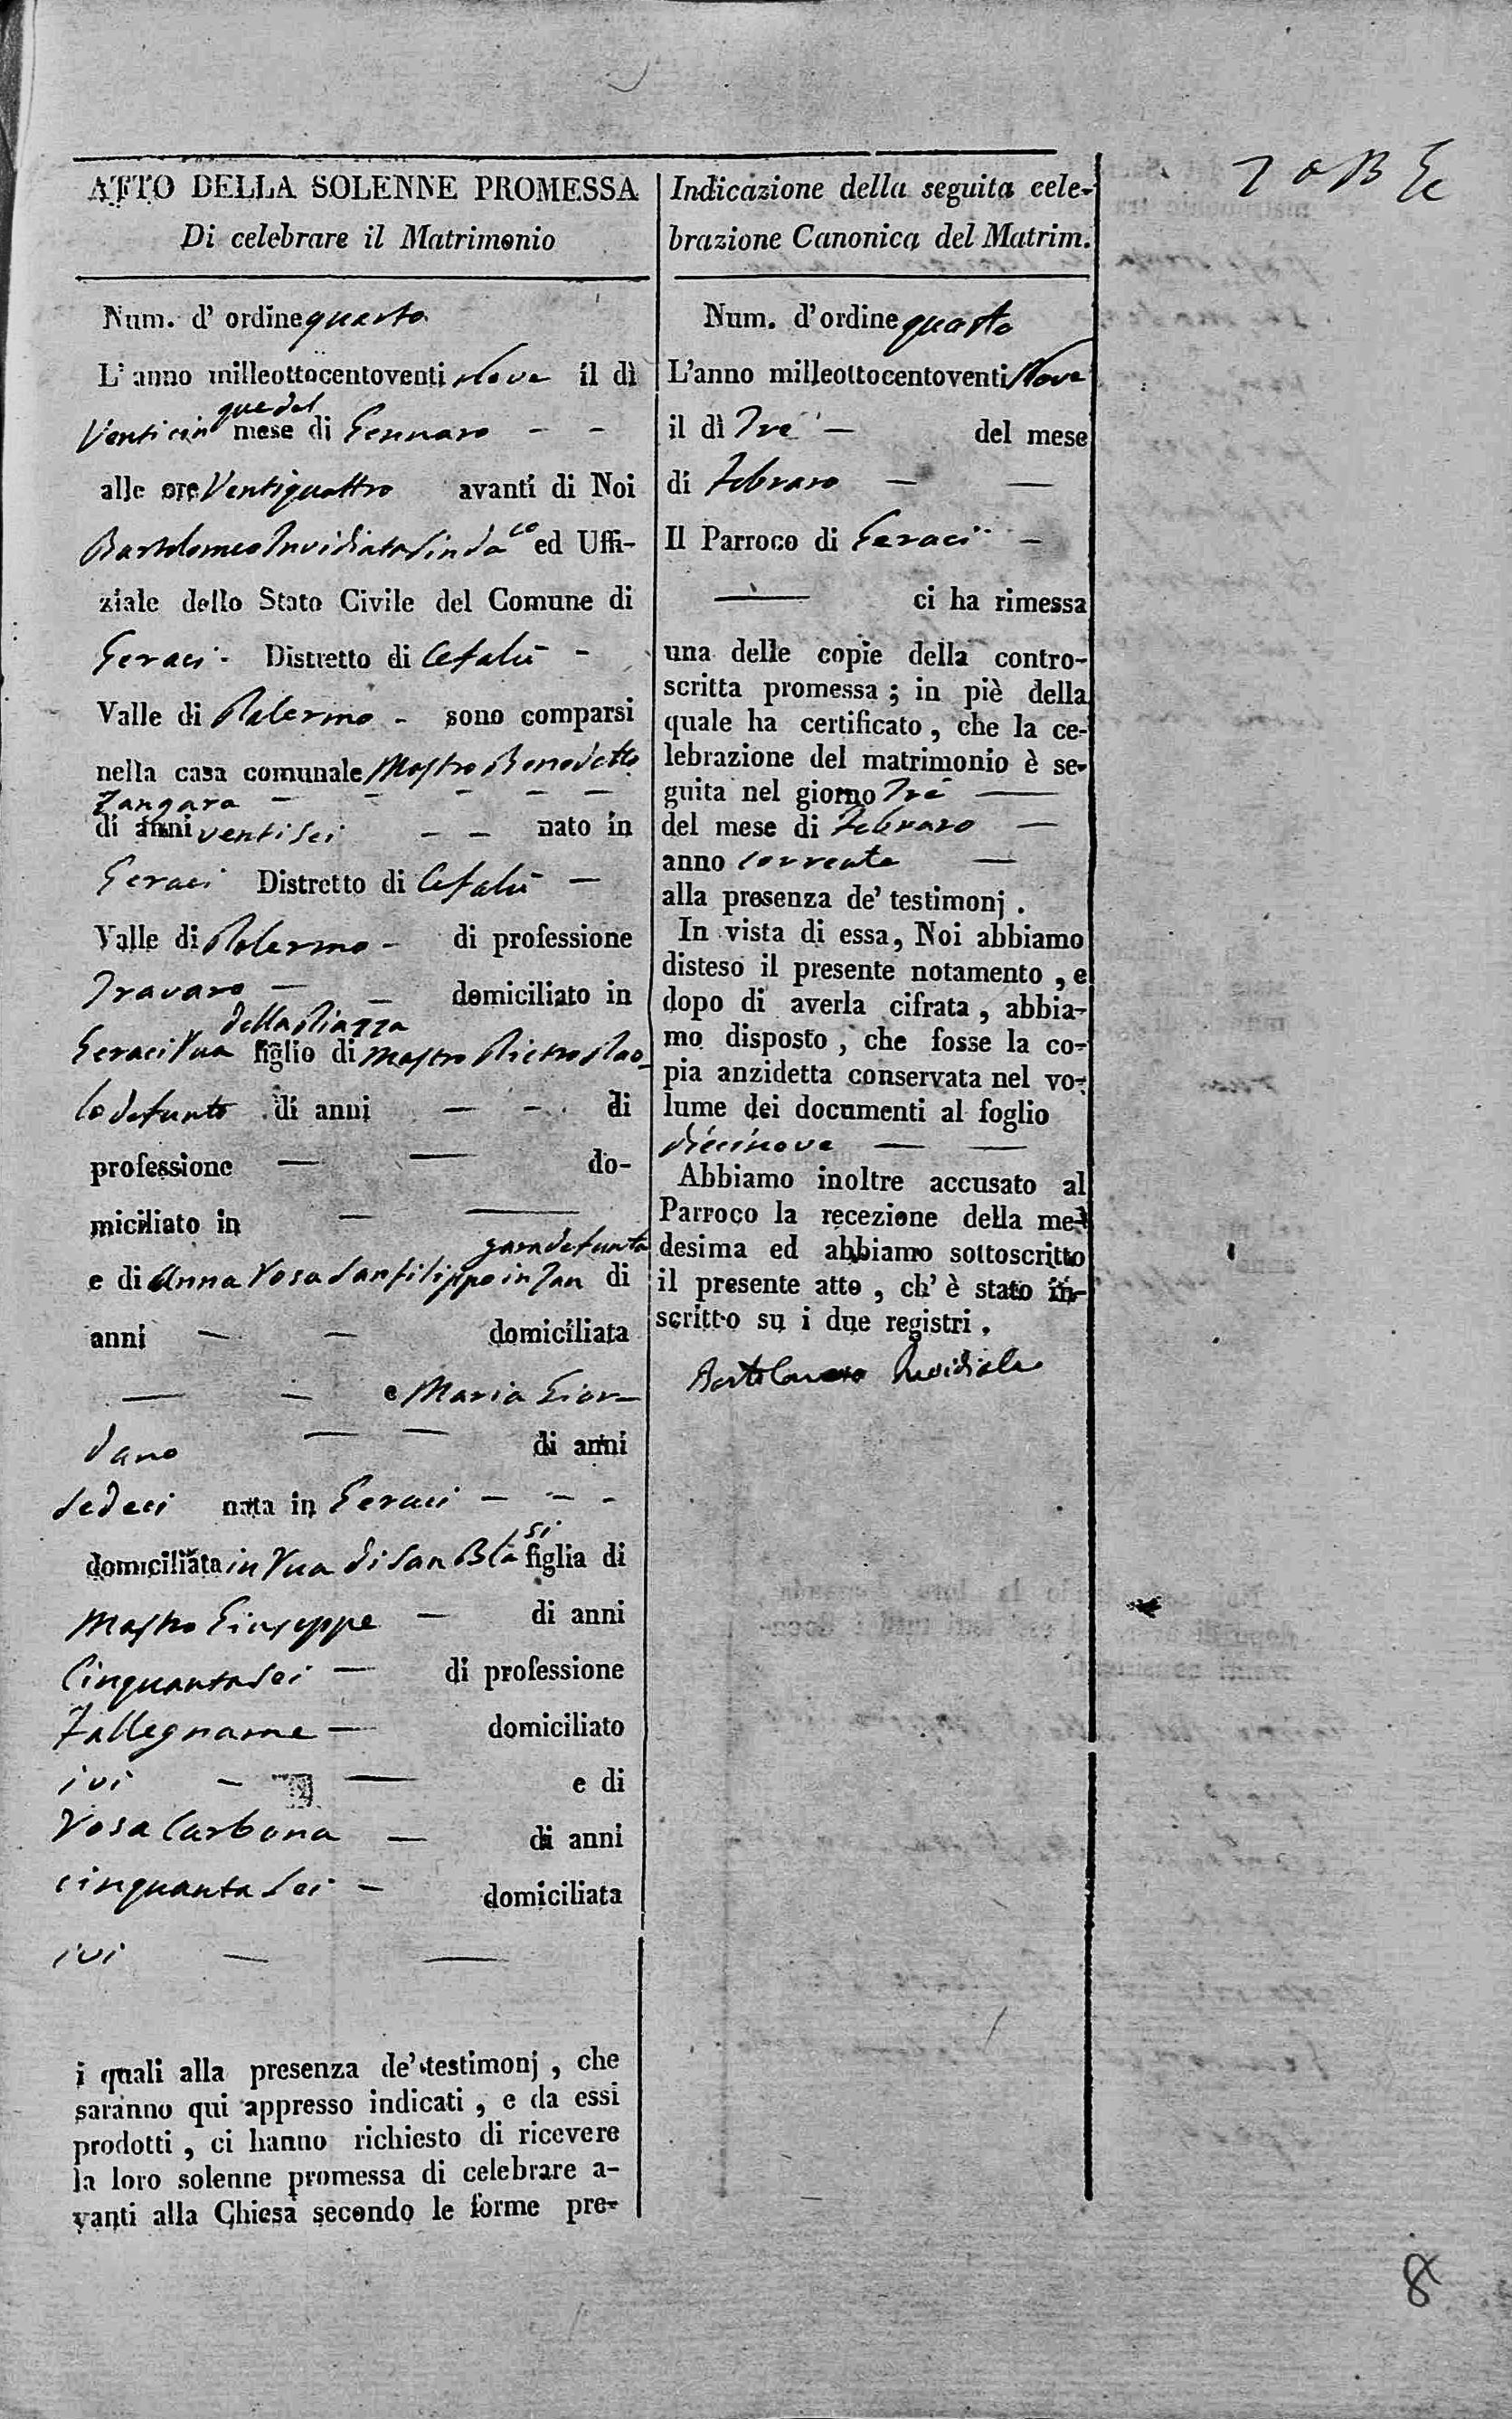 7 o B
ATTO DELLA SOLENNE PROMESSA
Di celebrare il Matrimonio
Num. d' ordine quarto
L' anno milleottocentoventi Nove il dì
que del
Venticin mese di Gennaro - -
alle ore Ventiquattro avanti di Noi
Bartolomeo Invidiata Sindaco ed Uffi-
ziale dello Stato Civile del Comune di
Geraci - Distretto di Cefalù -
Valle di Palermo - sono comparsi
nella casa comunale Mastro Benedetto
Zangara - - - - -
di anni ventisei - - nato in
Geraci Distretto di Cefalù -
Valle di Palermo - di professione
Travaro - - domiciliato in
della Piazza
Geraci Vua figlio di Mastro Pietro Pao-
lo defunto di anni - - di
professione - - do-
miciliato in - -
gara defunta
e di Anna Rosa Sanfilippo in Zan di
anni - - domiciliata
- - e Maria Gior-
dano - - di anni
sedeci nata in Geraci - - -
domiciliata in Vua di San Blasi figlia di
Mastro Giuseppe - di anni
Cinquantasei - di professione
Fallegname - domiciliato
ivi - - e di
Rosa Carbona - di anni
cinquanta sei - domiciliata
ivi - -
i quali alla presenza de' testimonj , che
saranno qui appresso indicati , e da essi
prodotti , ci hanno richiesto di ricevere
la loro solenne promessa di celebrare a-
vanti alla Chiesa secondo le forme pre-
Indicazione della seguita cele-
brazione Canonica del Matrim.
Num. d' ordine quarto
L'anno milleottocentoventi Nove
il dì Tre - del mese
di Febraro - -
Il Parroco di Geraci -
- ci ha rimessa
una delle copie della contro-
scritta promessa ; in piè della
quale ha certificato , che la ce-
lebrazione del matrimonio è se-
guita nel giorno Tre -
del mese di Febraro -
anno corrente -
alla presenza de' testimonj .
In vista di essa, Noi abbiamo
disteso il presente notamento , e
dopo di averla cifrata , abbia-
mo disposto , che fosse la co-
pia anzidetta conservata nel vo-
lume dei documenti al foglio
diecinove - -
Abbiamo inoltre accusato al
Parroco la recezione della me-
desima ed abbiamo sottoscritto
il presente atto , ch' è stato in-
scritto su i due registri .
Bartolomeo Invidiata
8